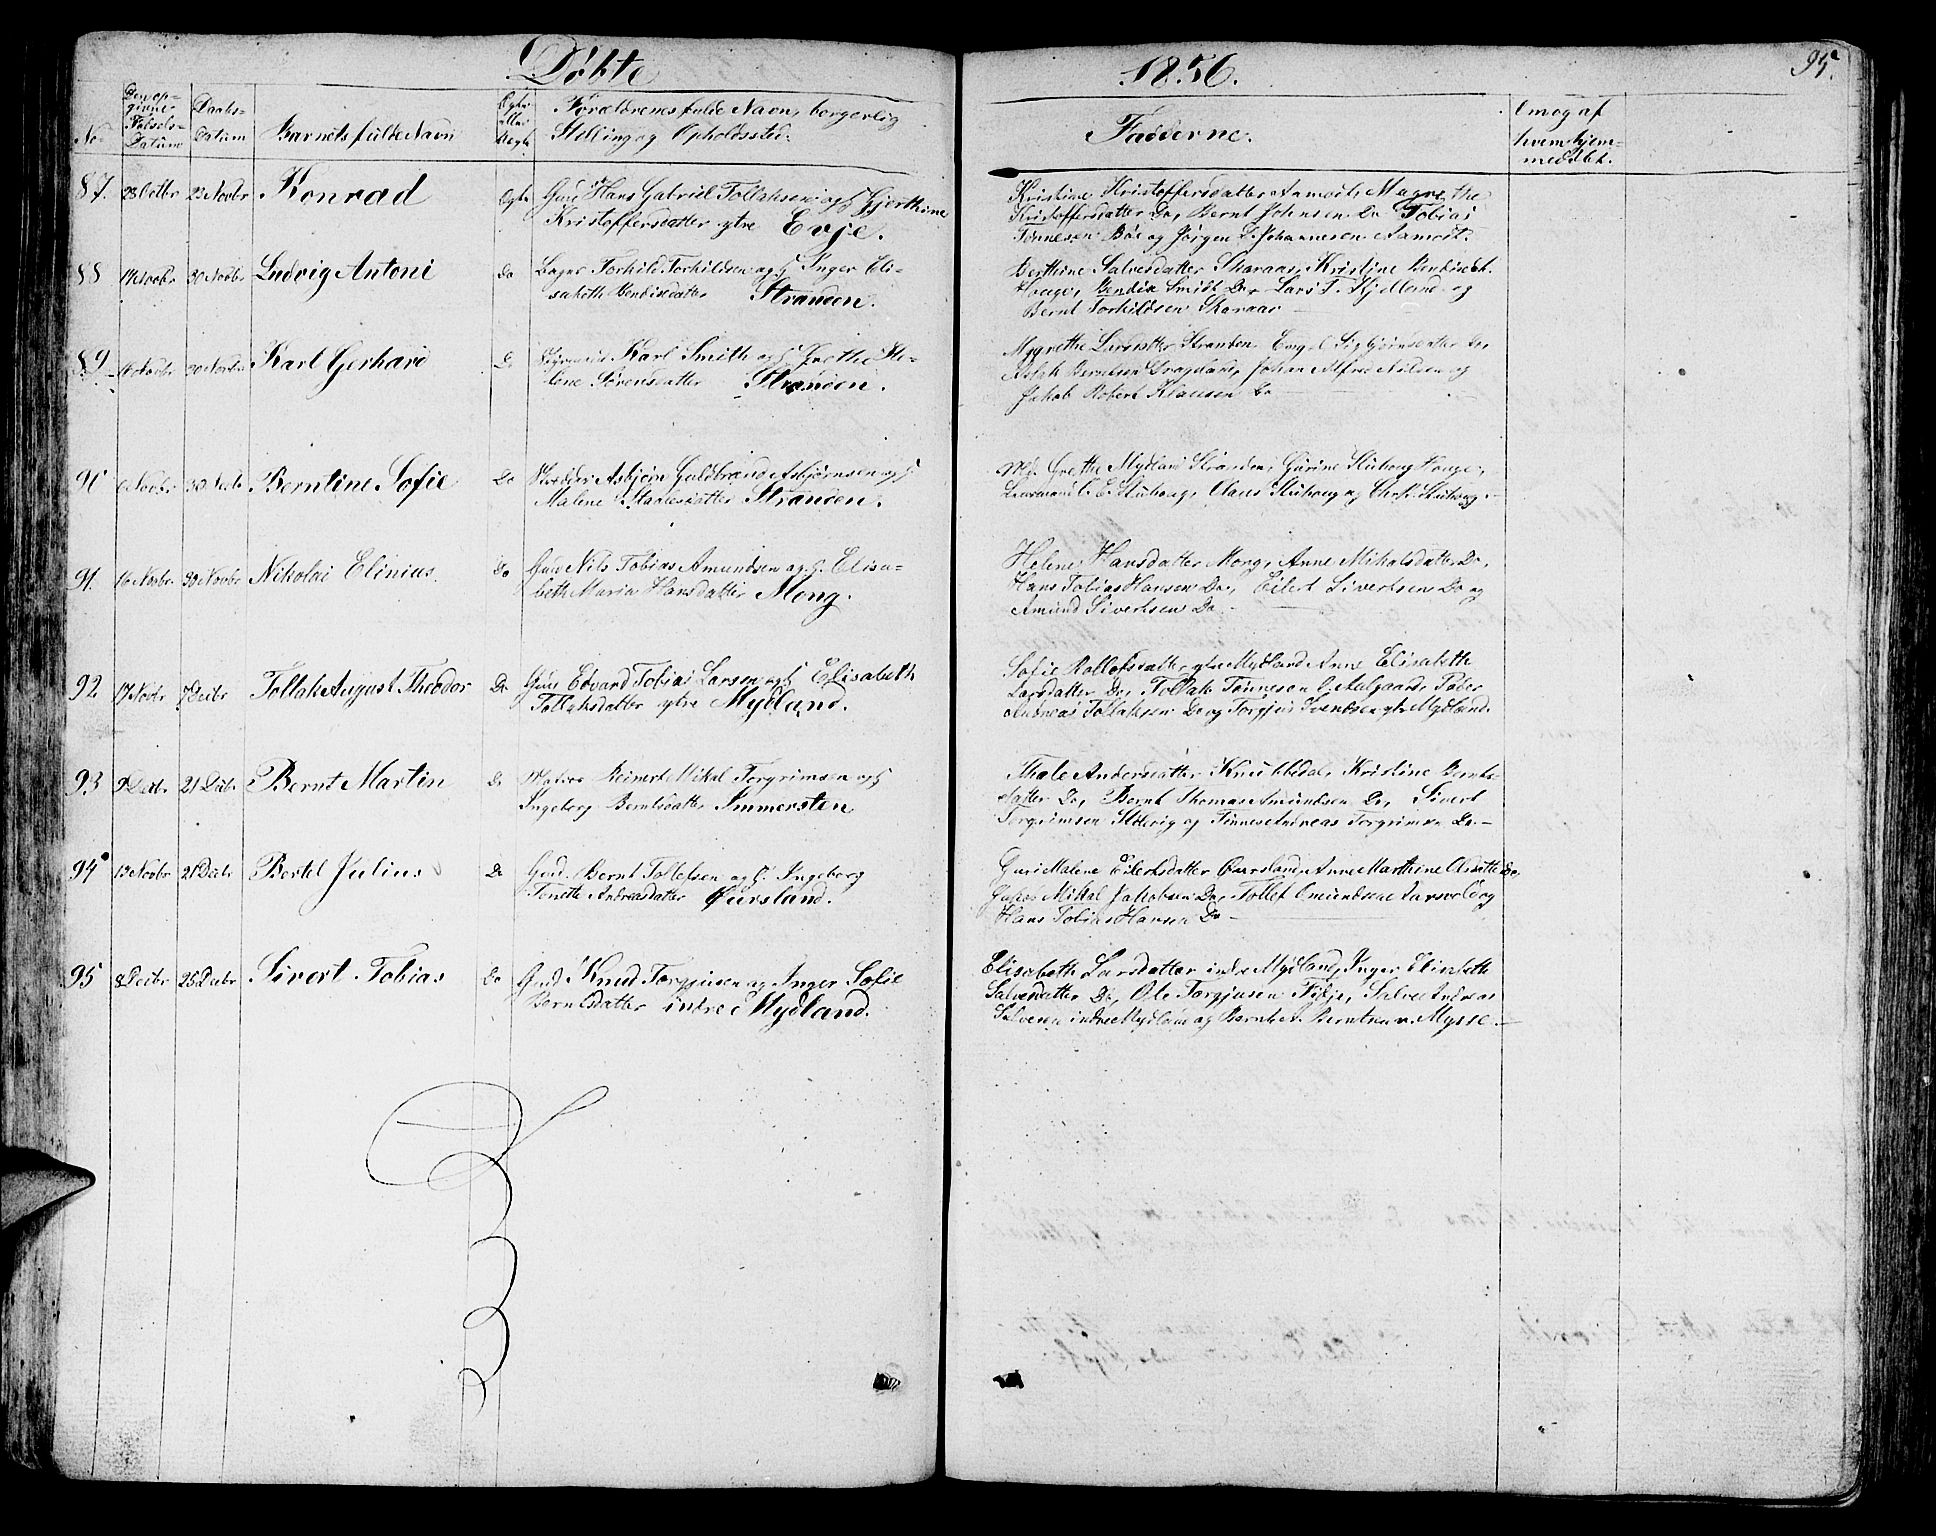 Døbte 1856. 95.
No
Den op-
givne
Fødsels-
Datum
Daabs-
Datum
Barnets fulde Navn
Ægte
eller
Uægte
Forældrenes fulde Navn, borgerlig
Stilling og Opholdssted.
Fadderne.
Om og af
hvem hjem-
medøbt.
87. 23 Octbr 23 Novbr Konrad Ægte Gmd Hans Gabriel Tollaksen og H Gjerthine
Kristoffersdatter ytre Evje.
Kristine Kristoffersdatter Aamodt, Magnethe
Kristoffersdatter Do, Bernt Johnsen Do Tobias
Tønnesen Bøe og Jørgen L. Johannesen Aamodt.
88 14 Novbr 30 Novbr Ludvig Antoni Do Torkild Torkildsen og H Inger Eli-
sabeth Bendixdatter Stranden.
Berthine Salvesdatter Skaraas, Kristine Bendixdt.
Houge, Bendix Smidt Do, Lars T. Kjelland og
Bernt Torkildsen Skaraas
89 14 Novbr 30 Novbr Karl Gerhard Do Karl Smith og H Grethe He-
lene Sørensdatter Stranden.
Stranden, Engel Sigbjørnsdatter Do,
Aslak Berntsen Dragland, Johan Alfred Nilsen og
Jakob Robert Klausen Do
90 6 Novbr 30 Novbr Berntine Sofie Do Skrædder Asbjørn Guldbrand Asbjørnsen og H
Malene Stranden.
Grethe Mydland Stranden, Gurine Stuhoug Houge,
E. Stuhoug, Claus Stuhoug og Chr. Stuhoug.
91. 16 Novbr 30 Novbr Nikolai Elinius. Do Gmd Nils Tobias Amundsen og H. Elisa-
beth Maria Hansdatter Mong.
Helene Hansdatter Mong, Anne Mikalsdatter Do,
Hans Tobias Hansen Do, Eilert Sivertsen Do og
Amund Sivertsen Do.
92 17 Novbr 7 Decbr Tollak August Theodor Do Gmd Edvard Tobias Larsen og H Elisabeth
Tollaksdatter ytre Mydland.
Sofie Rollofsdatter ytre Mydland Anne Elisabeth
Larsdatter Do, Tollak Tønnesen Aalgaard, Peder
Andreas Tollaksen Do og Torgjus Svendsen ytre Mydland.
93 9 Decbr 21 Decbr Bernt Martin Do Reinert Mikal Torgrimsen og H
Ingeborg Berntsdatter Immersten
Thale Andersdatter Knubbedal, Kristine Bernts-
datter Do, Bernt Thomas Amundsen Do, Sivert
Torgrimsen og Tønnes Andreas Torgrimsen Do.
94 13 Novbr 21 Decbr Bertel Julius Do Gmd. Bernt Tollefsen og H. Ingeborg
Tonette Andreasdatter Øursland.
Guri Malene Eilertsdatter Øursland, Anne Marthine Olsdatter Do,
Mikal Jakobsen Do, Tollef Omundsen Aarsvold og
Hans Tobias Hansen Do
95 8 Decbr 25 Decbr Sivert Tobias Do Gmd Knud Torgjusen og Inger Sofie
Berntsdatter indre Mydland.
Elisabeth Larsdatter indre Mydland, Inger Elisabeth
Salvesdatter Do, Ole Torgjusen Fidje, Salve Andreas
Salvesen indre Mydland og Bernt A. Berntsen n. Mysse.